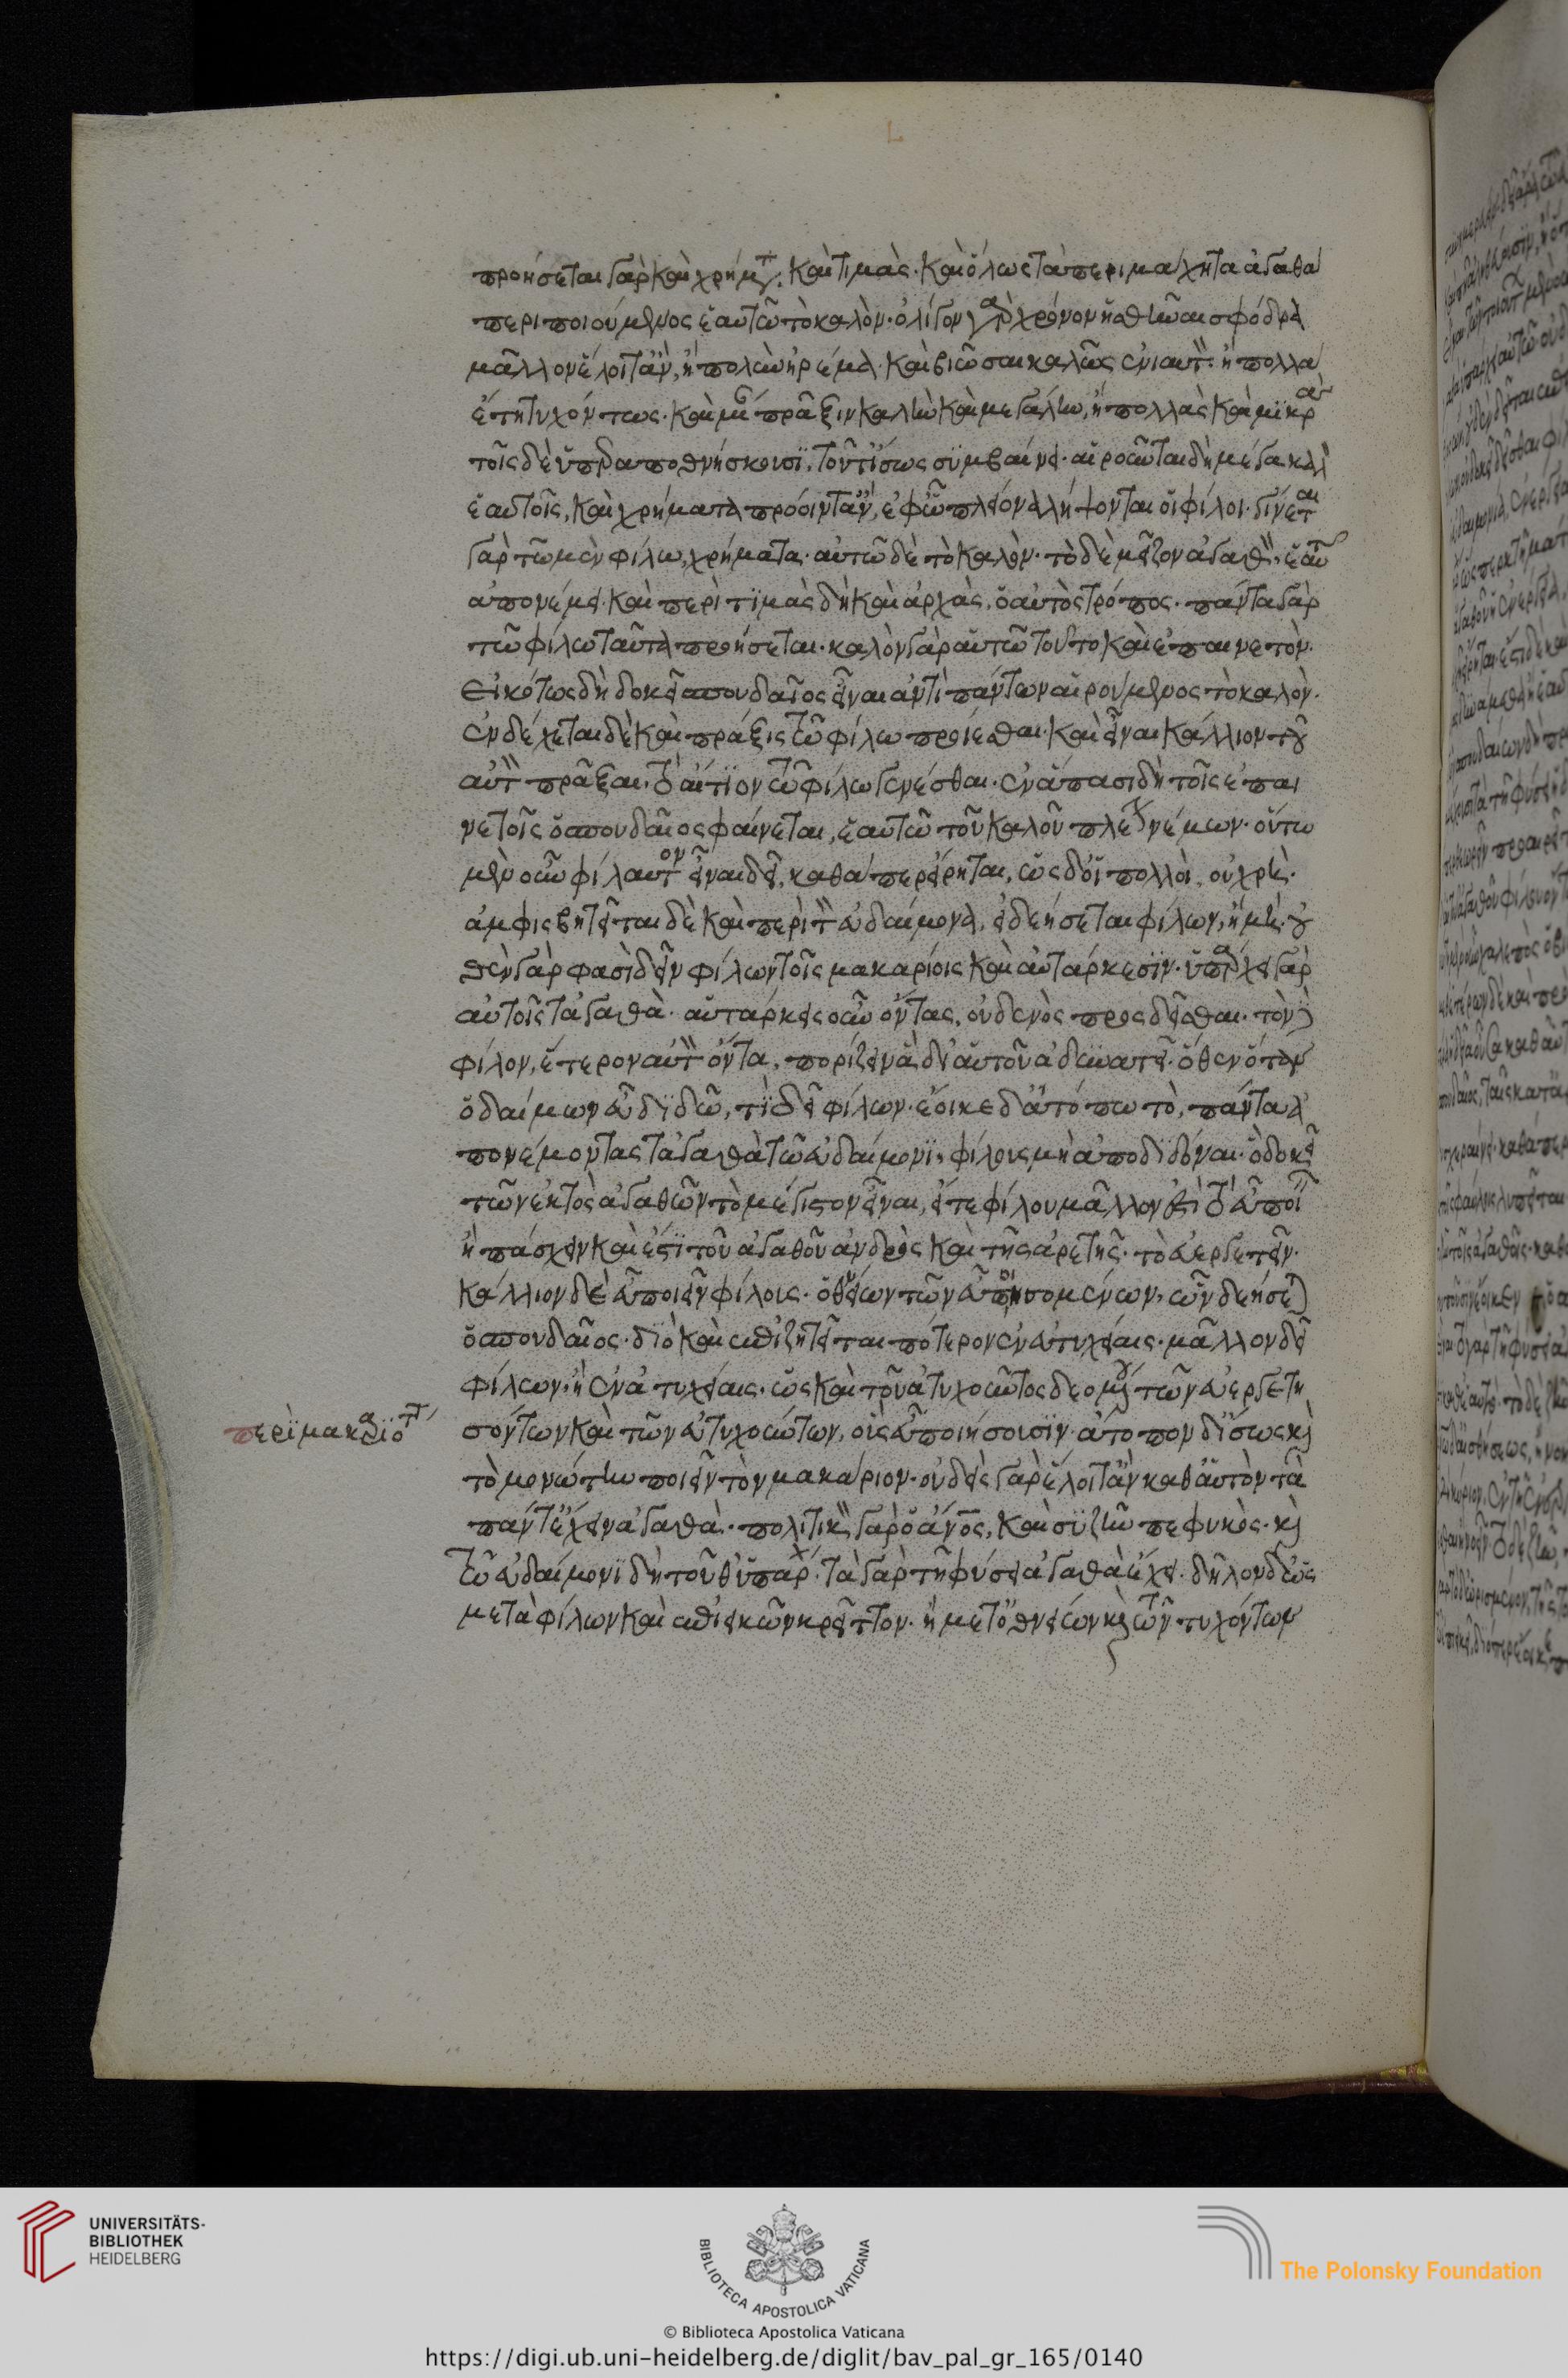 προήσεται γὰρ καὶ χρήματα· καὶ τιμὰς· καὶ ὅλως τὰ περιμάχητα ἀγαθὰ
περιποιούμενος ἑαυτῶ τὸ καλὸν· ὀλίγον γὰρ χρόνον ἡσθῆναι σφόδρα
μᾶλλον ἕλοιτ' ἂν, ἢ πολὺν ἠρέμα· καὶ βιῶσαι καλῶς ἐνιαυτὸν· ἢ πολλὰ
ἔτη τυχόντως· καὶ μίαν πρᾶξιν καλὴν καὶ μεγάλην, ἢ πολλὰς καὶ μικρὰς
τοῖς δ' ὑπεραποθνήσκουσι, τοῦτ' ἴσως συμβαίνει· αἱροῦνται δὴ μέγα καλὸν
ἑαυτοῖς, καὶ χρήματα προοῖντ' ἂν, ἐφ' ᾧ πλείονα λήψονται οἱ φίλοι· γίνεται
γὰρ τῶ μὲν φίλω, χρήματα· αὐτῶ δὲ τὸ καλὸν· τὸ δὲ μεῖζον ἀγαθὸν, ἑαυτῶ
ἀπονέμει· καὶ περὶ τιμὰς δὴ καὶ ἀρχὰς, ὁ αὐτὸς τρόπος· πάντα γὰρ
τῶ φίλω ταῦτα προήσεται· καλὸν γὰρ αὑτῶ τοῦτο καὶ ἐπαινετὸν·
εἰκότως δὴ δοκεῖ σπουδαῖος εἶναι ἀντὶ πάντων αἱρούμενος τὸ καλὸν·
ἐνδέχεται δὲ καὶ πράξεις τῶ φίλω προίεσθαι· καὶ εἶναι κάλλιον τοῦ
αὐτὸν πρᾶξαι, τὸ αἴτιον τῶ φίλω γενέσθαι· ἐν ἅπασι δὴ τοῖς ἐπαι
νετοῖς ὁ σπουδαῖος φαίνεται, ἑαυτῶ τοῦ καλοῦ πλέον νέμων· οὕτω
μὲν οὖν φίλαυτον εἶναι δεῖ, καθάπερ εἴρηται, ὡς δ' οἱ πολλοὶ, οὐ χρὴ·
ἀμφισβητεῖται δὲ καὶ περὶ τὸν εὐδαίμονα, εἰ δεήσεται φίλων, ἢ μὴ· οὐ
θὲν γὰρ φασὶ δεῖν φίλων τοῖς μακαρίοις καὶ αὐτάρκεσιν· ὑπάρχει γὰρ
αὐτοῖς τἀγαθὰ· αὐτάρκεις οὖν ὄντας, οὐδενὸς προσδεῖσθαι· τὸν δὲ
φίλον, ἕτερον αὐτὸν ὄντα, πορίζειν ἃ δι' αὑτοῦ ἀδυνατεῖ· ὅθεν ὅταν
ὁ δαίμων εὖ διδῶ, τί δεῖ φίλων· ἔοικε δ' ἀτόπω τὸ, πάντα ἀ
πονέμοντας τἀγαθὰ τῶ εὐδαίμονι, φίλους μὴ ἀποδιδόναι· ὃ δοκεῖ
τῶν ἐκτὸς ἀγαθῶν τὸ μέγιστον εἶναι, εἴ τε φίλου μᾶλλον ἐστὶ τὸ εὖ ποιεῖν
ἢ πάσχειν καὶ ἔστι τοῦ ἀγαθοῦ ἀνδρὸς καὶ τῆς ἀρετῆς· τὸ εὐεργετεῖν·
κάλλιον δὲ εὖ ποιεῖν φίλους· ὀθνείων τῶν εὖ πεισομένων, ὧν δεήσεται
ὁ σπουδαῖος· διὸ καὶ ἐπιζητεῖται πότερον ἐν εὐτυχίαις· μᾶλλον δεῖ
φίλων· ἢ ἐν ἀτυχίαις· ὡς καὶ τοῦ ἀτυχοῦντος δεομένου τῶν εὐεργετη
σόντων καὶ τῶν εὐτυχούντων, οὓς εὖ ποιήσουσιν· ἄτοπον δ' ἴσως καὶ
τὸ μονώτην ποιεῖν τὸν μακάριον· οὐδεὶς γὰρ ἕλοιτ' ἂν καθ' αὑτὸν τὰ
πάντ' ἔχειν ἀγαθὰ· πολιτικὸν γὰρ ὁ ἄνος, καὶ συζῆν πεφυκὸς· καὶ
τῶ εὐδαίμονι δὴ τοῦθ' ὑπάρχει· τὰ γὰρ τῆ φύσει ἀγαθὰ ἔχει· δῆλον δ' ὡς
μετὰ φίλων καὶ ἐπιεικῶν κρεῖττον· ἢ μετ' ὀθνείων καὶ τῶν τυχόντων
περὶ μακαριότητος
UNIVERSITÄTS-
BIBLIOTHEK
HEIDELBERG
BIBLIOTECA APOSTOLICA VATICANA
© Biblioteca Apostolica Vaticana
The Polonsky Foundation
https://digi.ub.uni-heidelberg.de/diglit/bav_pal_gr_165/0140